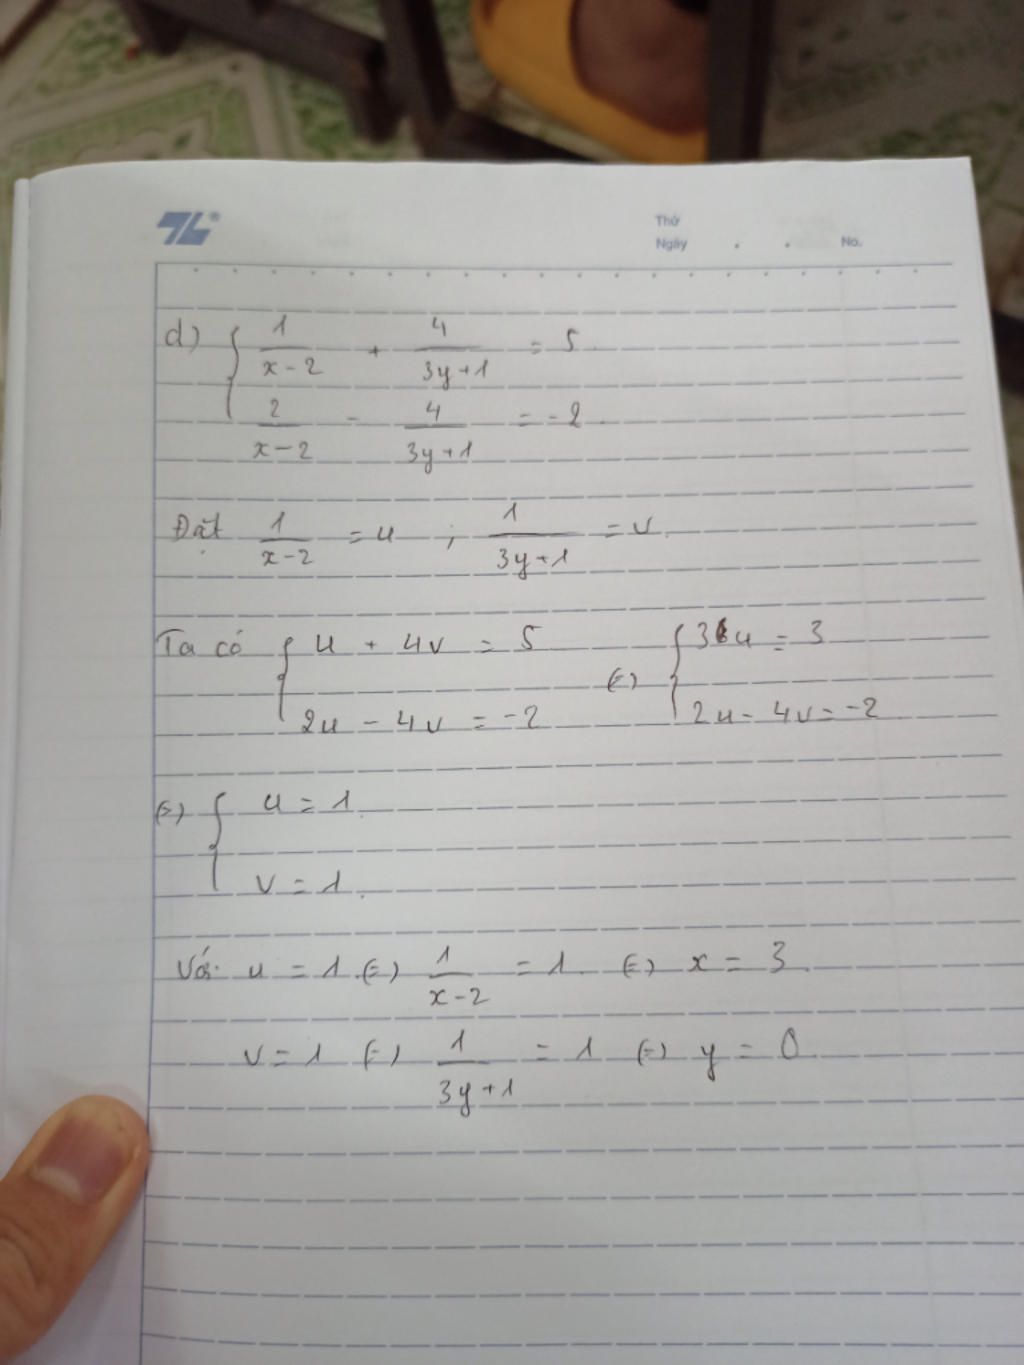 TL®
Thứ
Ngày . . No.
d) { 1/(x-2) + 4/(3y+1) = 5.
2/(x-2) - 4/(3y+1) = -2.
Đặt 1/(x-2) = u ; 1/(3y+1) = v.
Ta có { u + 4v = 5 (=) { 3u = 3
2u - 4v = -2 2u - 4v = -2
(=) { u = 1.
v = 1.
Với u = 1 (=) 1/(x-2) = 1. (=) x = 3.
v = 1 (=) 1/(3y+1) = 1 (=) y = 0